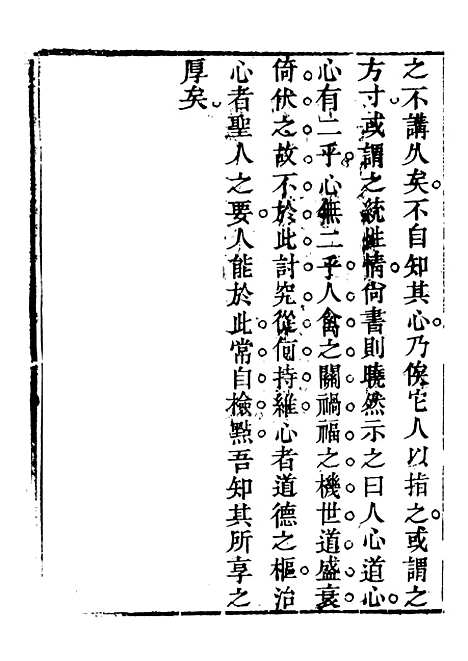 之不講久矣不自知其心乃俟它人以指之或謂之
方寸或謂之統性情尙書則曉然示之曰人心道心
心有二乎心無二乎人禽之關禍福之機世道盛衰
倚伏之故不於此討究從何持維心者道德之樞治
心者聖人之要人能於此常自檢點吾知其所享之
厚矣